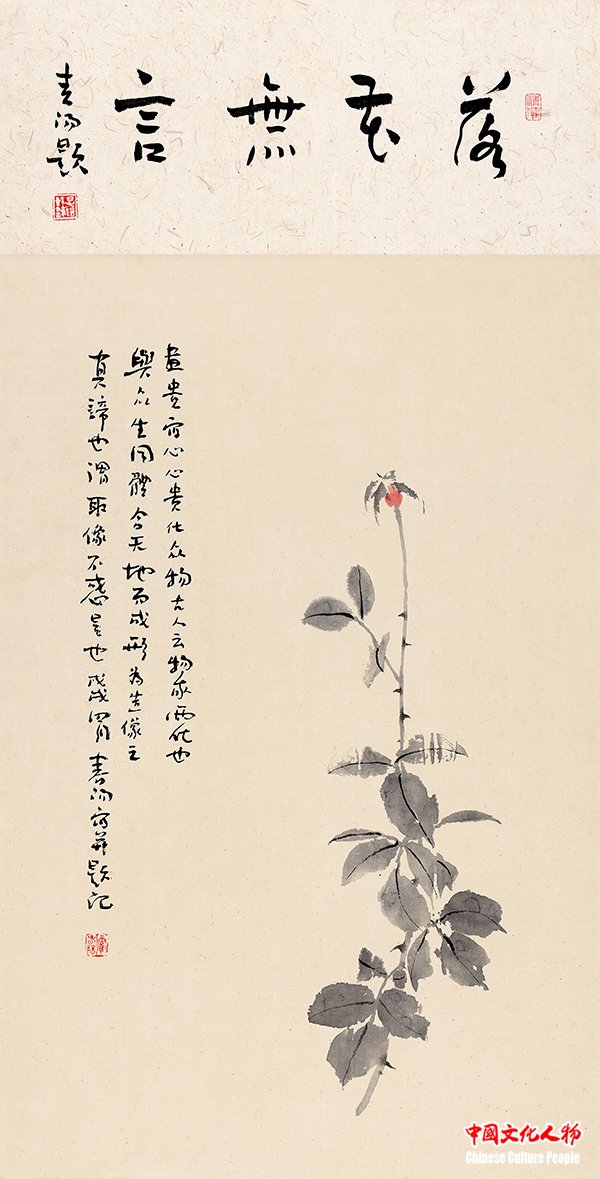 落花無言
題
畫貴寫心心貴化众物古人云物我兩化也
與众生同體合天地而成形為造像之
真諦也謂取像不惑是也戊戌寫并題記
中國文化人物
Chinese Culture People